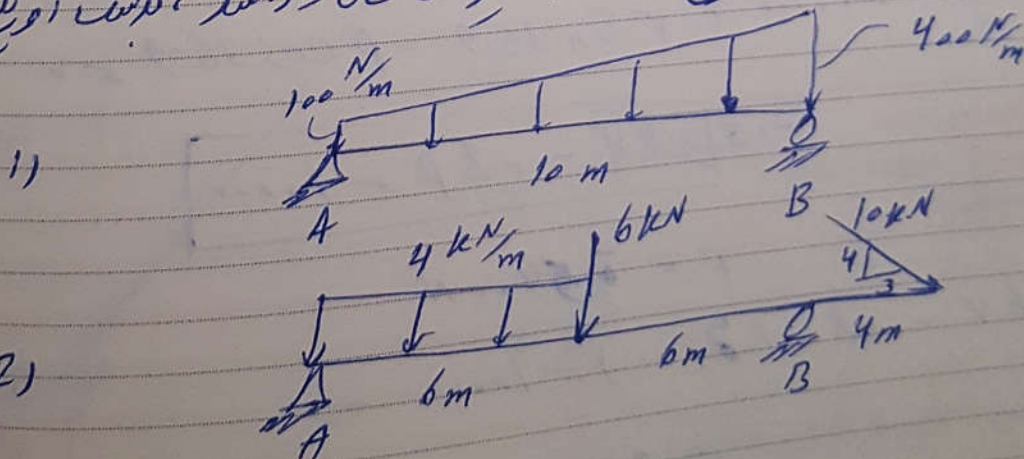 1)
100 N/m
400 N/m
10 m
A
B
2)
4 kN/m
6 kN
10 kN
4
3
6m
6m
4m
A
B